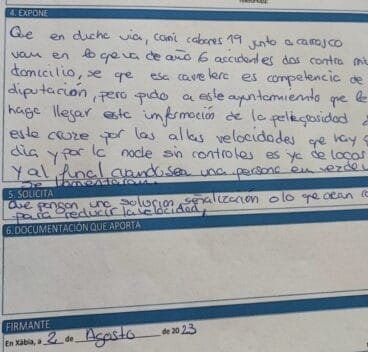 4. EXPONE
Que en ducha via, cami cabanes 19 junto a carrasco
van en lo que va de año 6 accidentes dos contra mi
domicilio, se que esa carretera es competencia de
diputación, pero pido a este ayuntamiento que le
haga llegar esta información de la peligrosidad
este cruze por las altas velocidades que hay
dia y por la noche sin controles es ya de locos
y al final cuando sea una persona en verde
se lamentaran.
5. SOLICITA
Que pongan una solución señalización o lo que crean
para reducir la velocidad,
6. DOCUMENTACIÓN QUE APORTA
FIRMANTE
En Xàbia, a 2 de Agosto de 2023